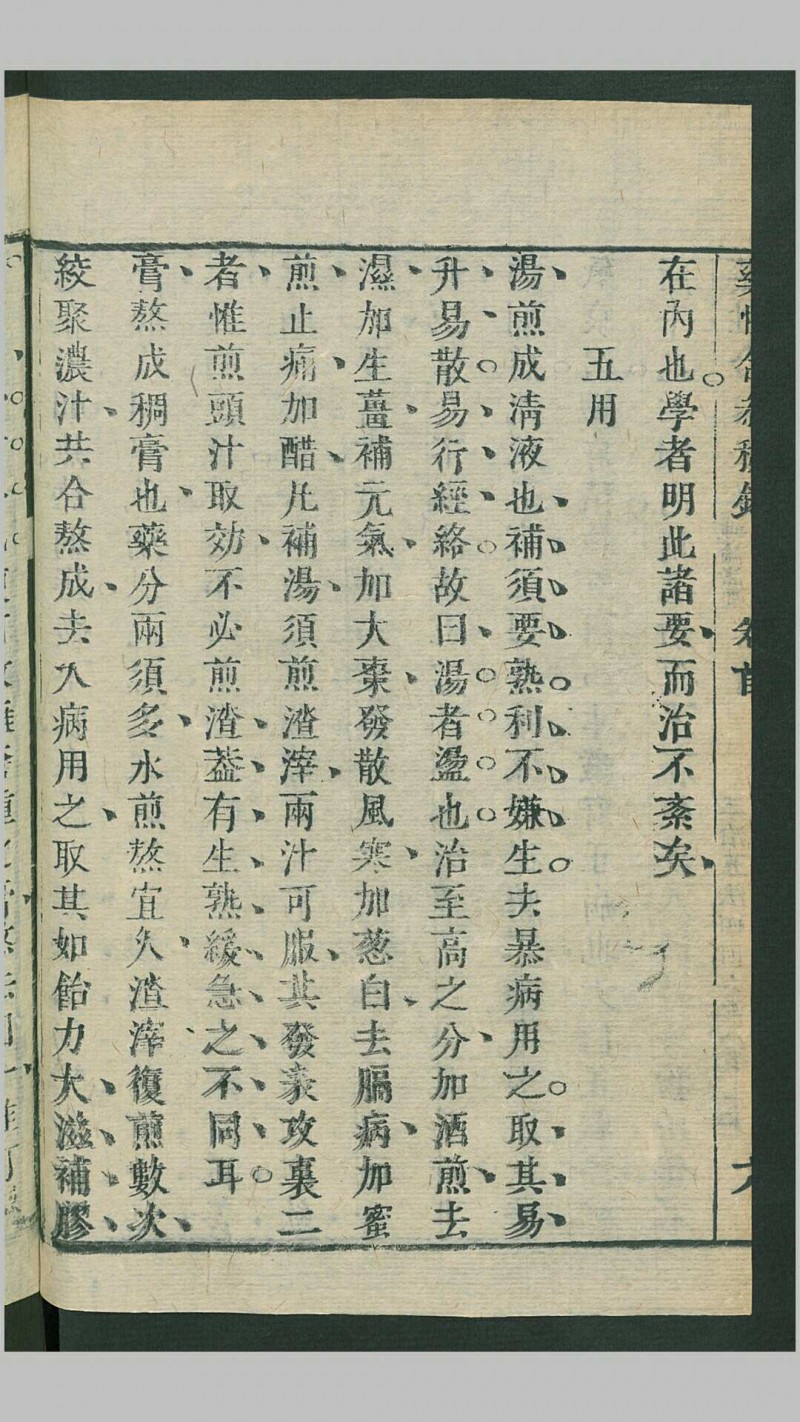 在內也學者明此諸要而治不紊矣
五用
湯煎成清液也補須要熟利不嫌生夫暴病用之取其易
升易散易行經絡故曰湯者盪也治至高之分加酒煎去
濕加生薑補元氣加大棗發散風寒加葱白去膈病加蜜
煎止痛加醋凡補湯須煎渣滓兩汁可服其發表攻裏二
者惟煎頭汁取効不必煎渣葢有生熟緩急之不同耳
膏熬成稠膏也藥分兩須多水煎熬宜久渣滓復煎數次
絞聚濃汁共合熬成去久病用之取其如飴力大滋補膠